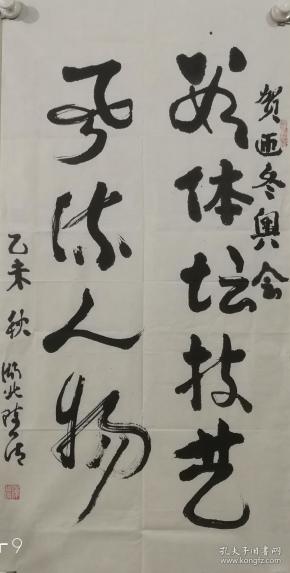 贺亚冬奥会
数体坛技艺
看风流人物
乙未秋
湖北陆
9
孔夫子旧书网